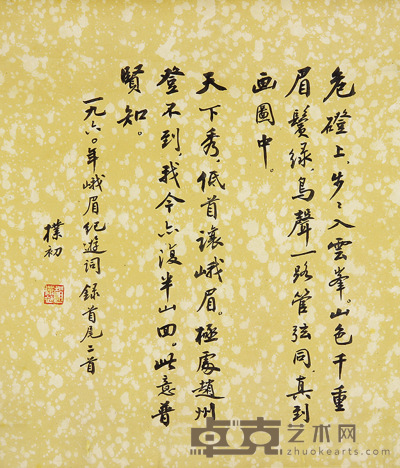 危磴上，步々入雲峯。山色千重
眉鬓綠，鳥聲一路管弦同，真到
画圖中。
天下秀，低首讓峨眉。極處趙州
登不到，我今亦復半山回。此意普
賢知。
一九六〇年峨眉紀遊詞 録首尾二首
樸初
卓克艺术网
www.zhuokearts.com